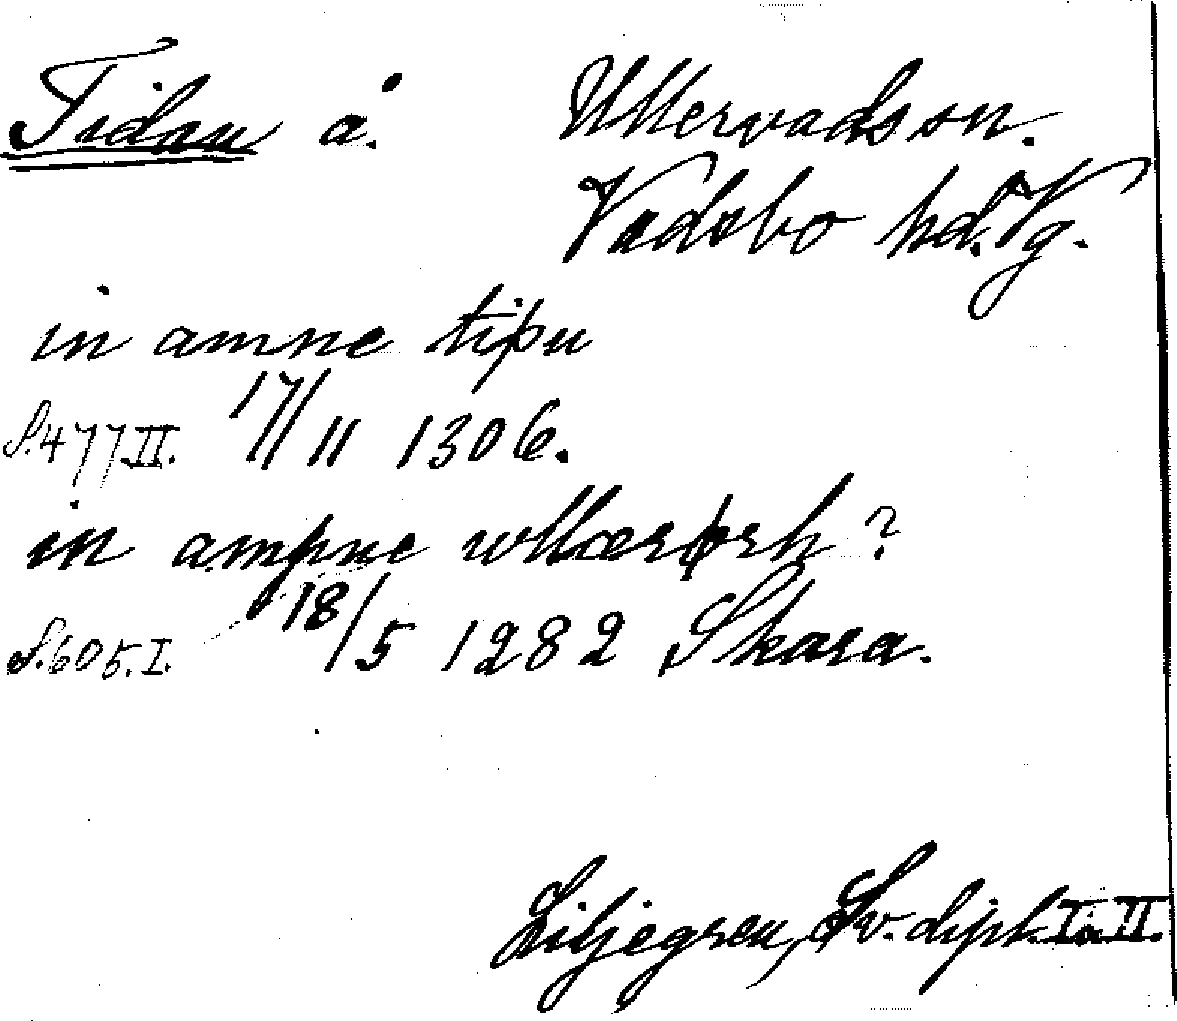 Tidan å. Ullervads sn.
Vadsbo hd. Vg.
in amne tipu
S. 477 II. 17/11 1306.
in ampne wllærørh?
S. 605. I. 18/5 1282 Skara.
Liljegren, Sv. dipl. I. II.